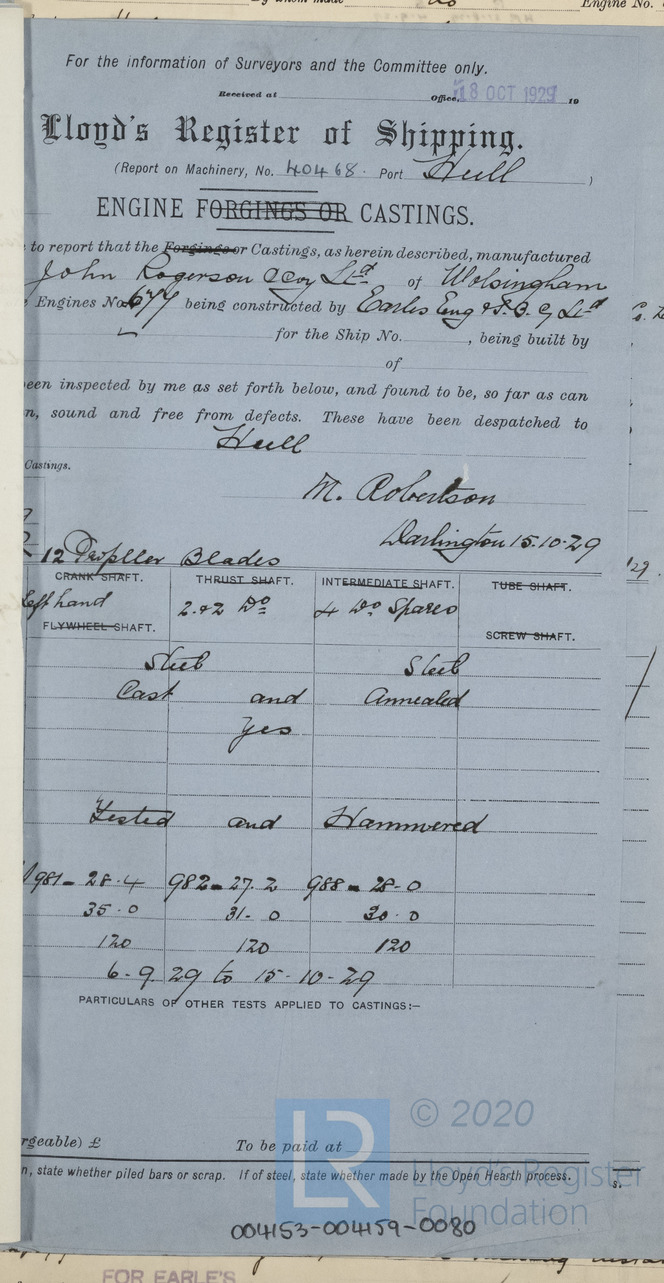 By whom made do Engine No.
For the information of Surveyors and the Committee only.
Received at Office, 18 OCT 1929 19
Lloyd's Register of Shipping.
(Report on Machinery, No. 40468. Port Hull )
ENGINE FORGINGS OR CASTINGS.
to report that the Forgings or Castings, as herein described, manufactured
John Rogerson & Coy Ltd of Wolsingham
Engines No. 677 being constructed by Earles Eng & S.B. Cy Ltd
for the Ship No. , being built by
of
een inspected by me as set forth below, and found to be, so far as can
n, sound and free from defects. These have been despatched to
Hull
Castings.
M. Robertson
Darlington 15.10.29
12 Propller Blades
CRANK SHAFT. THRUST SHAFT. INTERMEDIATE SHAFT. TUBE SHAFT.
Left hand 2.&2 Do 4 Do Spares
FLYWHEEL SHAFT. SCREW SHAFT.
Steel Steel
Cast and Annealed
Yes
Tested and Hammered
981 - 28.4 982 - 27.2 988 - 28-0
35.0 31-0 30.0
120 120 120
6-9.29 to 15-10-29
PARTICULARS OF OTHER TESTS APPLIED TO CASTINGS:—
© 2020
LR
rgeable) £ To be paid at
Lloyd's Register
n, state whether piled bars or scrap. If of steel, state whether made by the Open Hearth process.
s.
Foundation
004153-004159-0080
FOR EARLE'S